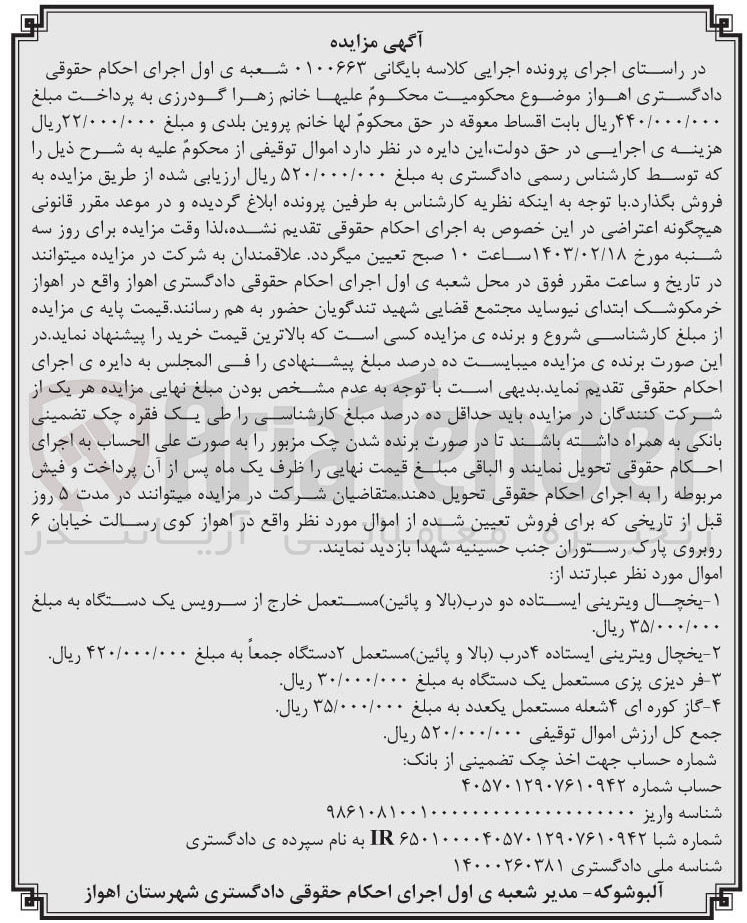 آگهی مزایده
در راستای اجرای پرونده اجرایی کلاسه بایگانی ۰۱۰۰۶۶۳ شعبه ی اول اجرای احکام حقوقی
دادگستری اهواز موضوع محکومیت محکومٌ علیها خانم زهرا گودرزی به پرداخت مبلغ
۴۴۰/۰۰۰/۰۰۰ریال بابت اقساط معوقه در حق محکومٌ لها خانم پروین بلدی و مبلغ ۲۲/۰۰۰/۰۰۰ریال
هزینه ی اجرایی در حق دولت،این دایره در نظر دارد اموال توقیفی از محکومٌ علیه به شرح ذیل را
که توسط کارشناس رسمی دادگستری به مبلغ ۵۲۰/۰۰۰/۰۰۰ ریال ارزیابی شده از طریق مزایده به
فروش بگذارد.با توجه به اینکه نظریه کارشناس به طرفین پرونده ابلاغ گردیده و در موعد مقرر قانونی
هیچگونه اعتراضی در این خصوص به اجرای احکام حقوقی تقدیم نشده،لذا وقت مزایده برای روز سه
شنبه مورخ ۱۴۰۳/۰۲/۱۸ساعت ۱۰ صبح تعیین میگردد. علاقمندان به شرکت در مزایده میتوانند
در تاریخ و ساعت مقرر فوق در محل شعبه ی اول اجرای احکام حقوقی دادگستری اهواز واقع در اهواز
خرمکوشک ابتدای نیوساید مجتمع قضایی شهید تندگویان حضور به هم رسانند.قیمت پایه ی مزایده
از مبلغ کارشناسی شروع و برنده ی مزایده کسی است که بالاترین قیمت خرید را پیشنهاد نماید.در
این صورت برنده ی مزایده میبایست ده درصد مبلغ پیشنهادی را فی المجلس به دایره ی اجرای
احکام حقوقی تقدیم نماید.بدیهی است با توجه به عدم مشخص بودن مبلغ نهایی مزایده هر یک از
شرکت کنندگان در مزایده باید حداقل ده درصد مبلغ کارشناسی را طی یک فقره چک تضمینی
بانکی به همراه داشته باشند تا در صورت برنده شدن چک مزبور را به صورت علی الحساب به اجرای
احکام حقوقی تحویل نمایند و الباقی مبلغ قیمت نهایی را ظرف یک ماه پس از آن پرداخت و فیش
مربوطه را به اجرای احکام حقوقی تحویل دهند.متقاضیان شرکت در مزایده میتوانند در مدت ۵ روز
قبل از تاریخی که برای فروش تعیین شده از اموال مورد نظر واقع در اهواز کوی رسالت خیابان ۶
روبروی پارک رستوران جنب حسینیه شهدا بازدید نمایند.
اموال مورد نظر عبارتند از:
۱-یخچال ویترینی ایستاده دو درب(بالا و پائین)مستعمل خارج از سرویس یک دستگاه به مبلغ
۳۵/۰۰۰/۰۰۰ ریال.
۲-یخچال ویترینی ایستاده ۴درب (بالا و پائین)مستعمل ۲دستگاه جمعاً به مبلغ ۴۲۰/۰۰۰/۰۰۰ ریال.
۳-فر دیزی پزی مستعمل یک دستگاه به مبلغ ۳۰/۰۰۰/۰۰۰ ریال.
۴-گاز کوره ای ۴شعله مستعمل یکعدد به مبلغ ۳۵/۰۰۰/۰۰۰ ریال.
جمع کل ارزش اموال توقیفی ۵۲۰/۰۰۰/۰۰۰ ریال.
شماره حساب جهت اخذ چک تضمینی از بانک:
حساب شماره ۴۰۵۷۰۱۲۹۰۷۶۱۰۹۴۲
شناسه واریز ۹۸۶۱۰۸۱۰۰۱۰۰۰۰۰۰۰۰۰۰۰۰۰۰۰۰۰۰۰
شماره شبا IR ۶۵۰۱۰۰۰۰۴۰۵۷۰۱۲۹۰۷۶۱۰۹۴۲ به نام سپرده ی دادگستری
شناسه ملی دادگستری ۱۴۰۰۰۲۶۰۳۸۱
آلبوشوکه- مدیر شعبه ی اول اجرای احکام حقوقی دادگستری شهرستان اهواز
AriaTender